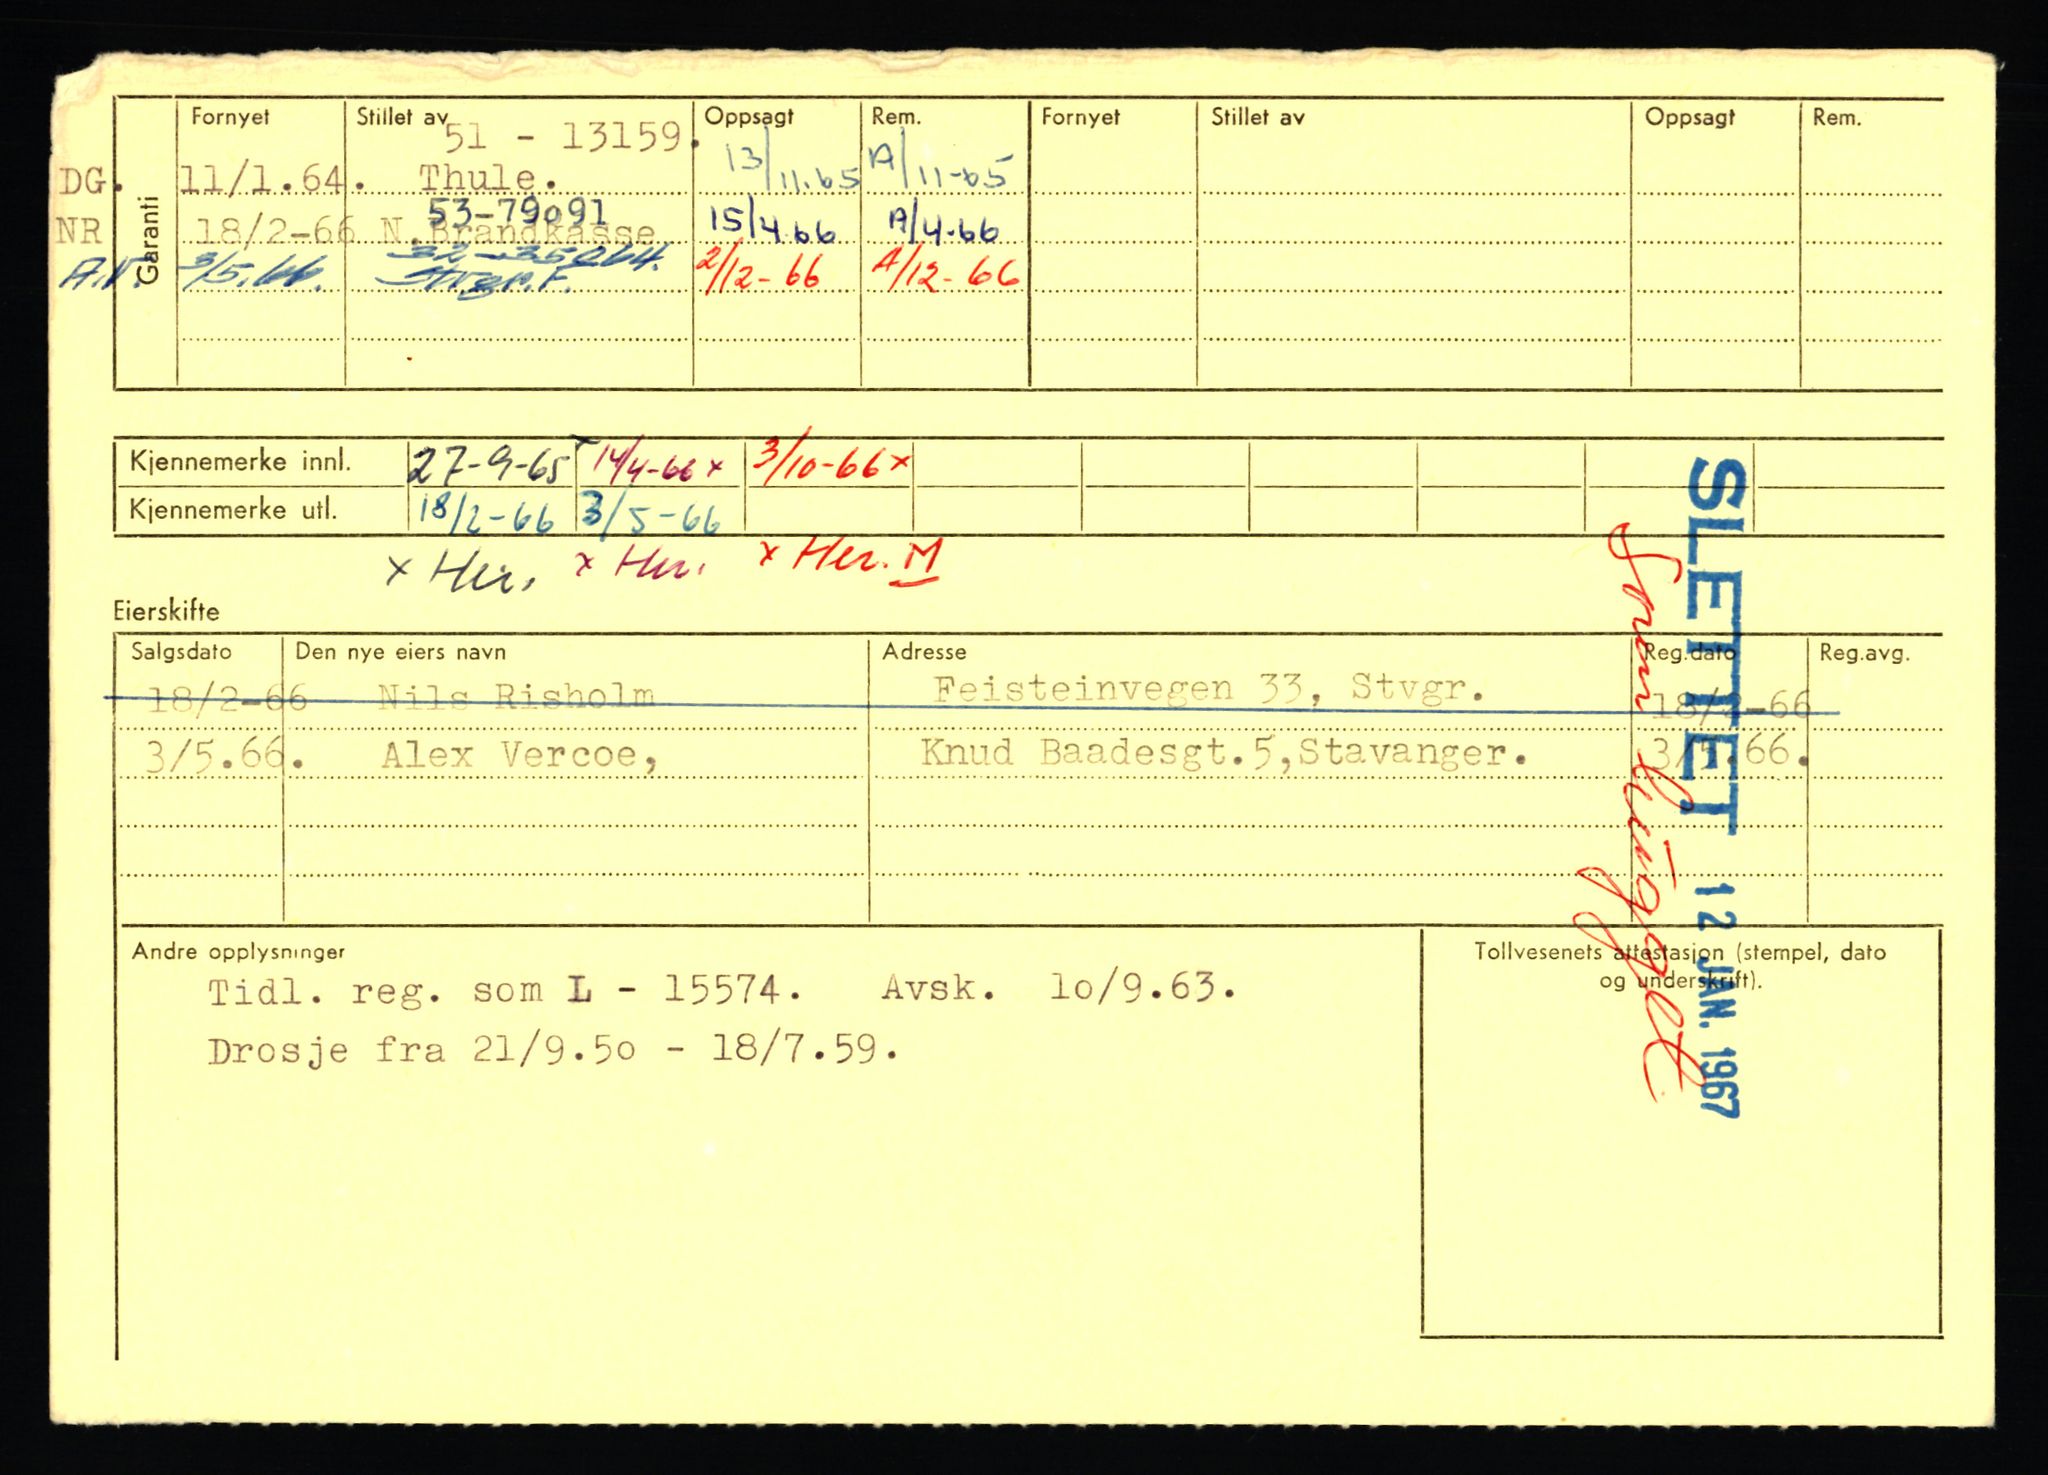 Fornyet Stillet av Oppsagt Rem. Fornyet Stillet av Oppsagt Rem.
51 - 13159.
DG. 11/1.64. Thule. 13/11.65 A/11-65
53-79o91
NR 18/2-66 N.Brandkasse 15/4.66 A/4-66
A.N. 3/5.66. 2/12-66 A/12-66
Garanti
Kjennemerke innl. 27-9-65 x 14/4-66 x 3/10-66 x
Kjennemerke utl. 18/2-66 3/5-66
x Her. x Her. x Her. M
Eierskifte
Salgsdato Den nye eiers navn Adresse Reg.dato Reg.avg.
18/2-66 Nils Risholm Feisteinvegen 33, Stvgr. 18/2-66
3/5.66. Alex Vercoe, Knud Baadesgt.5,Stavanger. 3/5.66.
Andre opplysninger
Tidl. reg. som L - 15574. Avsk. 1o/9.63.
Drosje fra 21/9.5o - 18/7.59.
Tollvesenets attestasjon (stempel, dato
og underskrift).
SLETTET 12 JAN. 1967
Som hugget